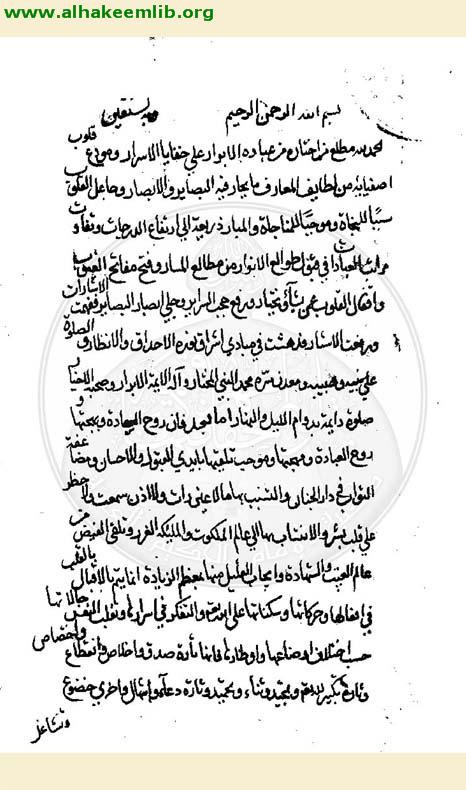 www.alhakeemlib.org
بسم الله الرحمن الرحيم وبه نستعين
الحمد لله مطلع من اختاره من عباده الابرار على خفايا الاسرار ومودع قلوب
اصفيائه من لطايف المعارف ما يحار فيه البصاير والابصار وجاعل القلوب
سببا للنجاة وموجبا للمناجاة والمبار ذريعة الى ارتفاع الدرجات وتفاوت
مراتب العباد في طوالع الانوار من مطالع المسار وفتح مفاتح الغيوب
واقفال القلوب عمن يشاء ويختار ورفع حجب السراير وجلى ابصار البصاير ففهمت الاشارات
ورفعت الاستار فدهشت في مبادي اشراق نوره الاحداق والانظار والصلوة
على نبيه وحبيبه ومعدن سره محمد النبي المختار وآله الائمة الابرار وصحبه الاخيار
صلوة دائمة بدوام الليل والنهار اما بعد فان روح السعادة وبهجتها و
روح العبادة ومهجتها وموجب تلقيها بايدي القبول والاحسان ومضاعفة
الثواب في دار الجنان والتشبب بها مالا عين رات ولا اذن سمعت ولا خطر
على قلب بشر والانتساب بها الى عالم الملكوت والمليكة الغرر وتلقى الفيض من
عالم الغيب والشهادة وايجاب العمل منها معظم الزيادة انما يتم بالاقبال بالقلب
في افعالها وحركاتها وسكناتها على الله والتفكر في اسرارها وتقلب النفس حالاتها
حسب اختلاف اوضاعها واوطارها فانها تارة صدق واخلاص وانقطاع واختصاص
وتارة تكبير وتمجيد وثناء وتحميد وتارة دعاء وابتهال واخرى خضوع